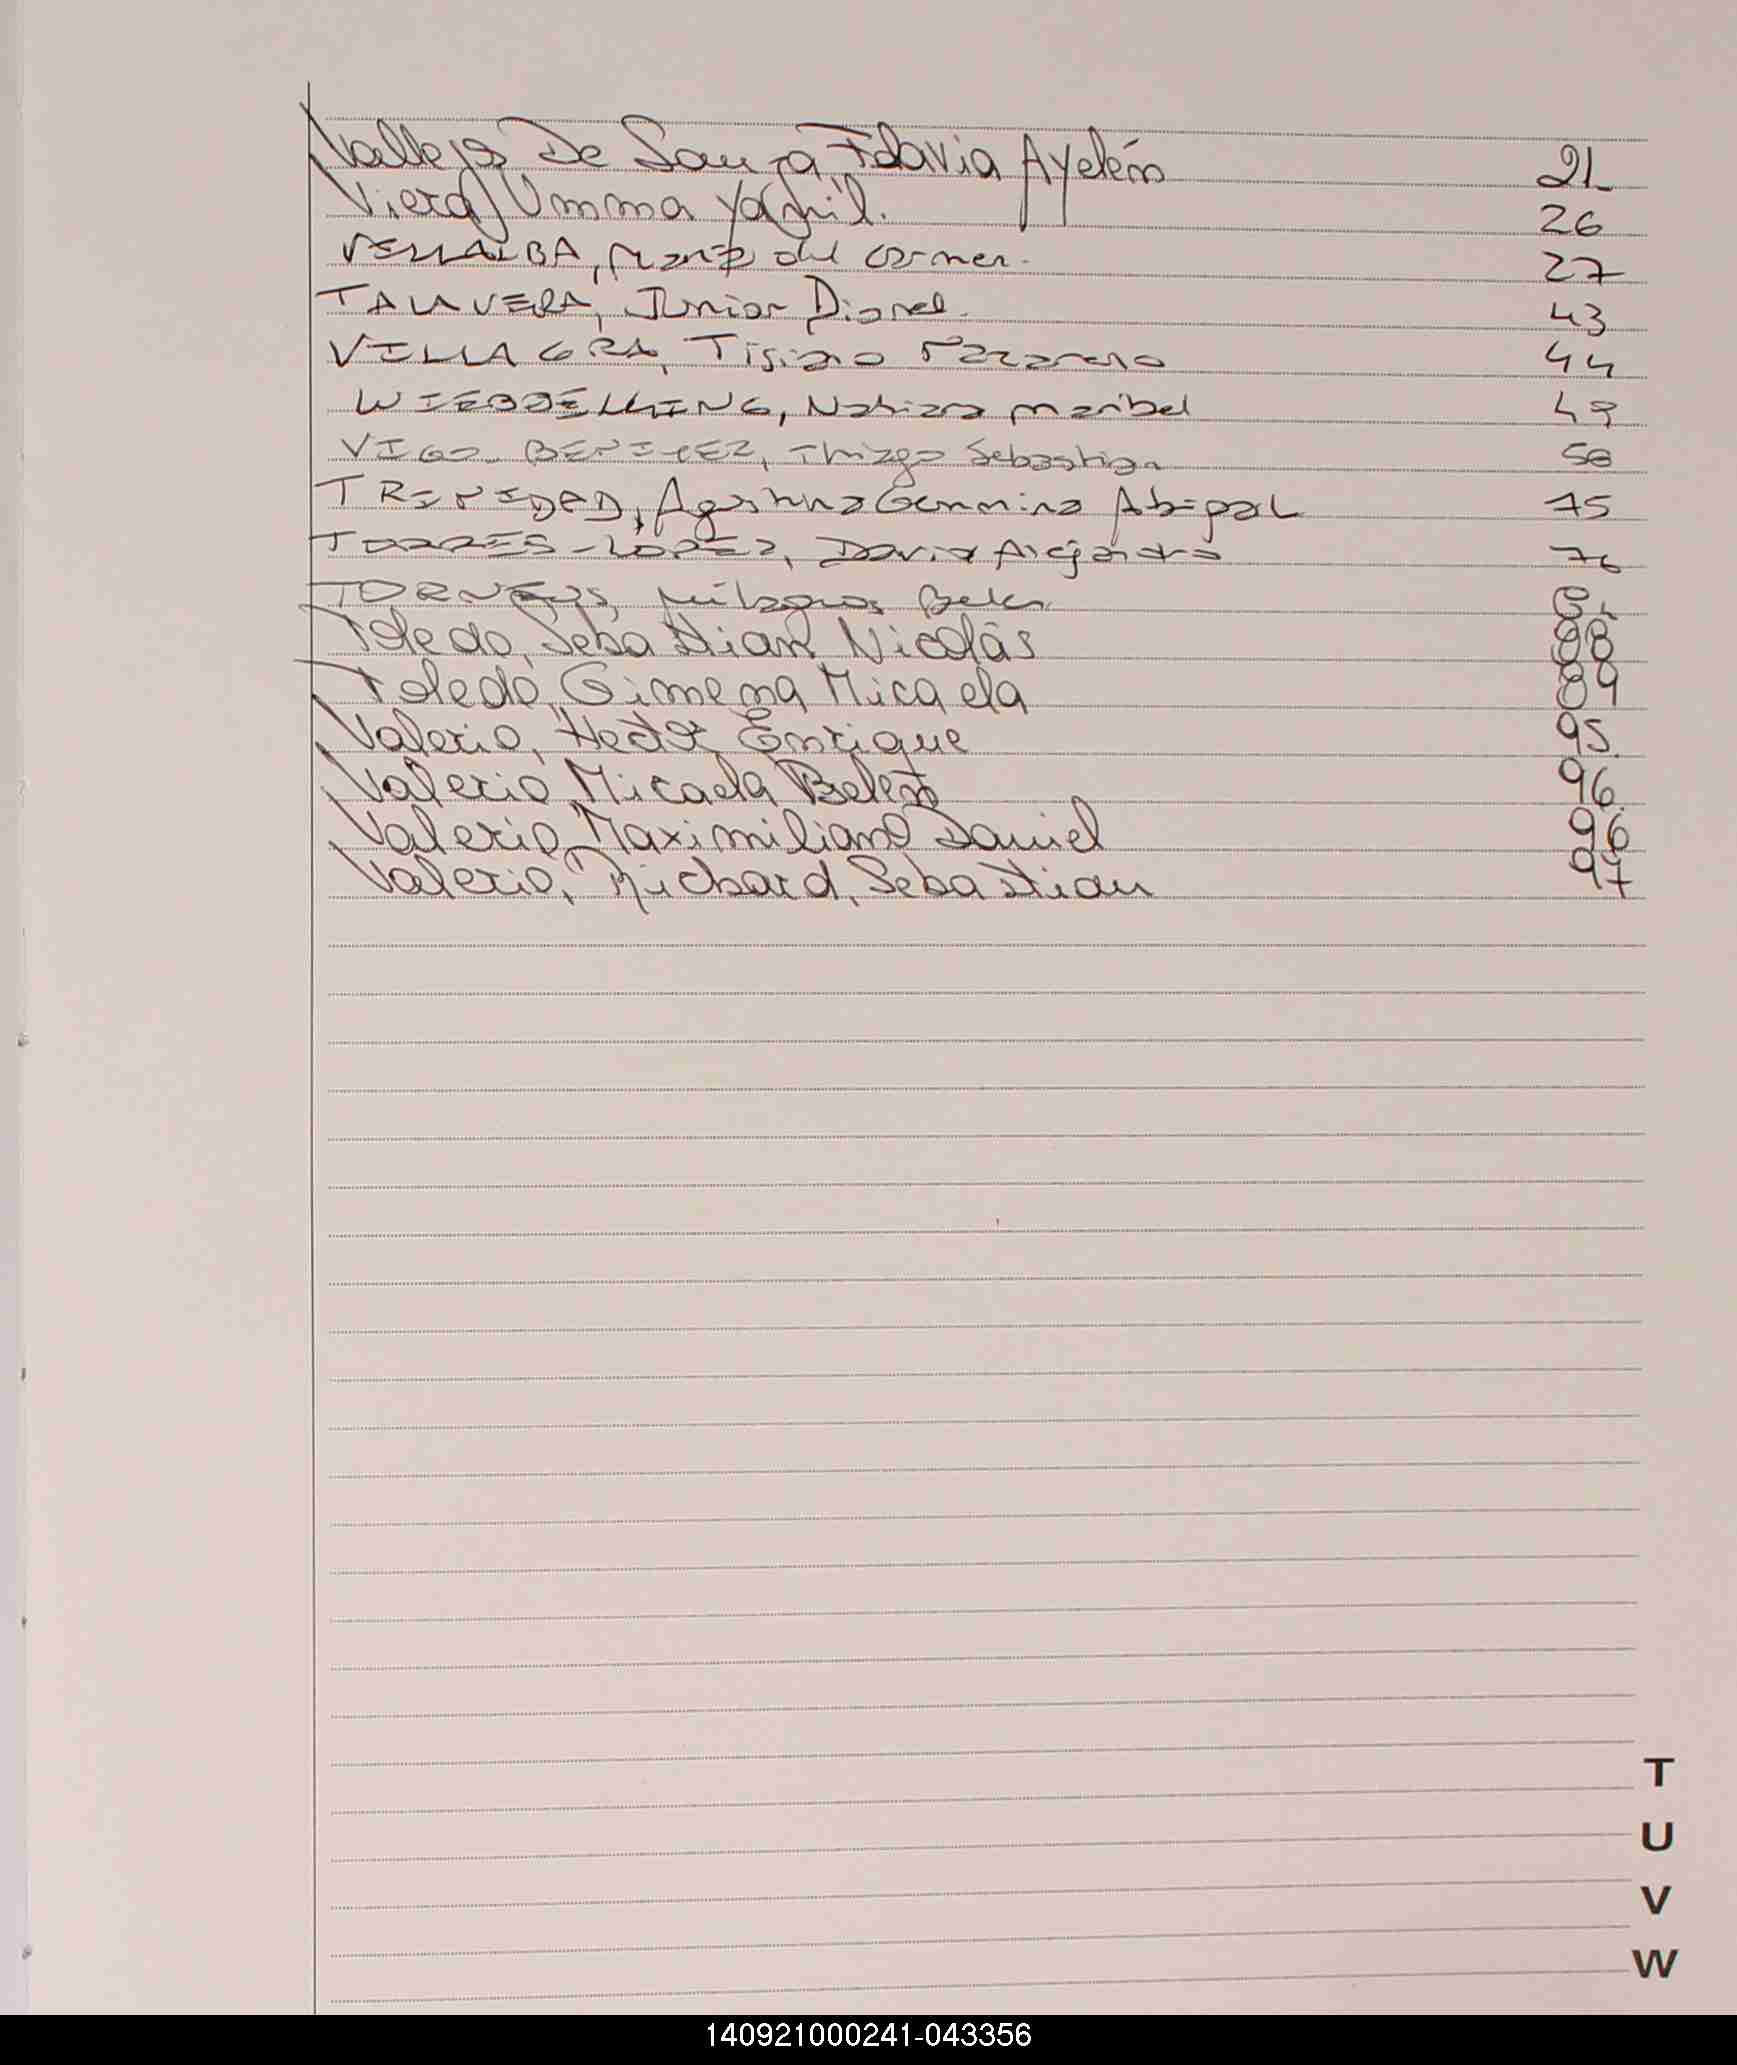 Vallejos De Souza Flavia Ayelén 21
Viera, Umma Yamil. 26
VILLALBA, María del Carmen. 27
TALAVERA, Junior Dionel. 43
VILLAGRA, Tiziano Nazareno 44
WIEDDELLING, Nahiara Maribel 49
VIGO BENITEZ, Thiago Sebastian 50
TRINIDAD, Agustina Gemmina Abigail 75
TORRES-LOPEZ, David Alejandro 76
Milagros Belen
Toledo, Sebastian Nicolás 88
Toledo, Gimena Micaela 89
Valerio, Hector Enrique 95
Valerio, Micaela Belen 96
Valerio, Maximiliano Daniel 96
Valerio, Richard, Sebastian 97
T
U
V
W
140921000241-043356